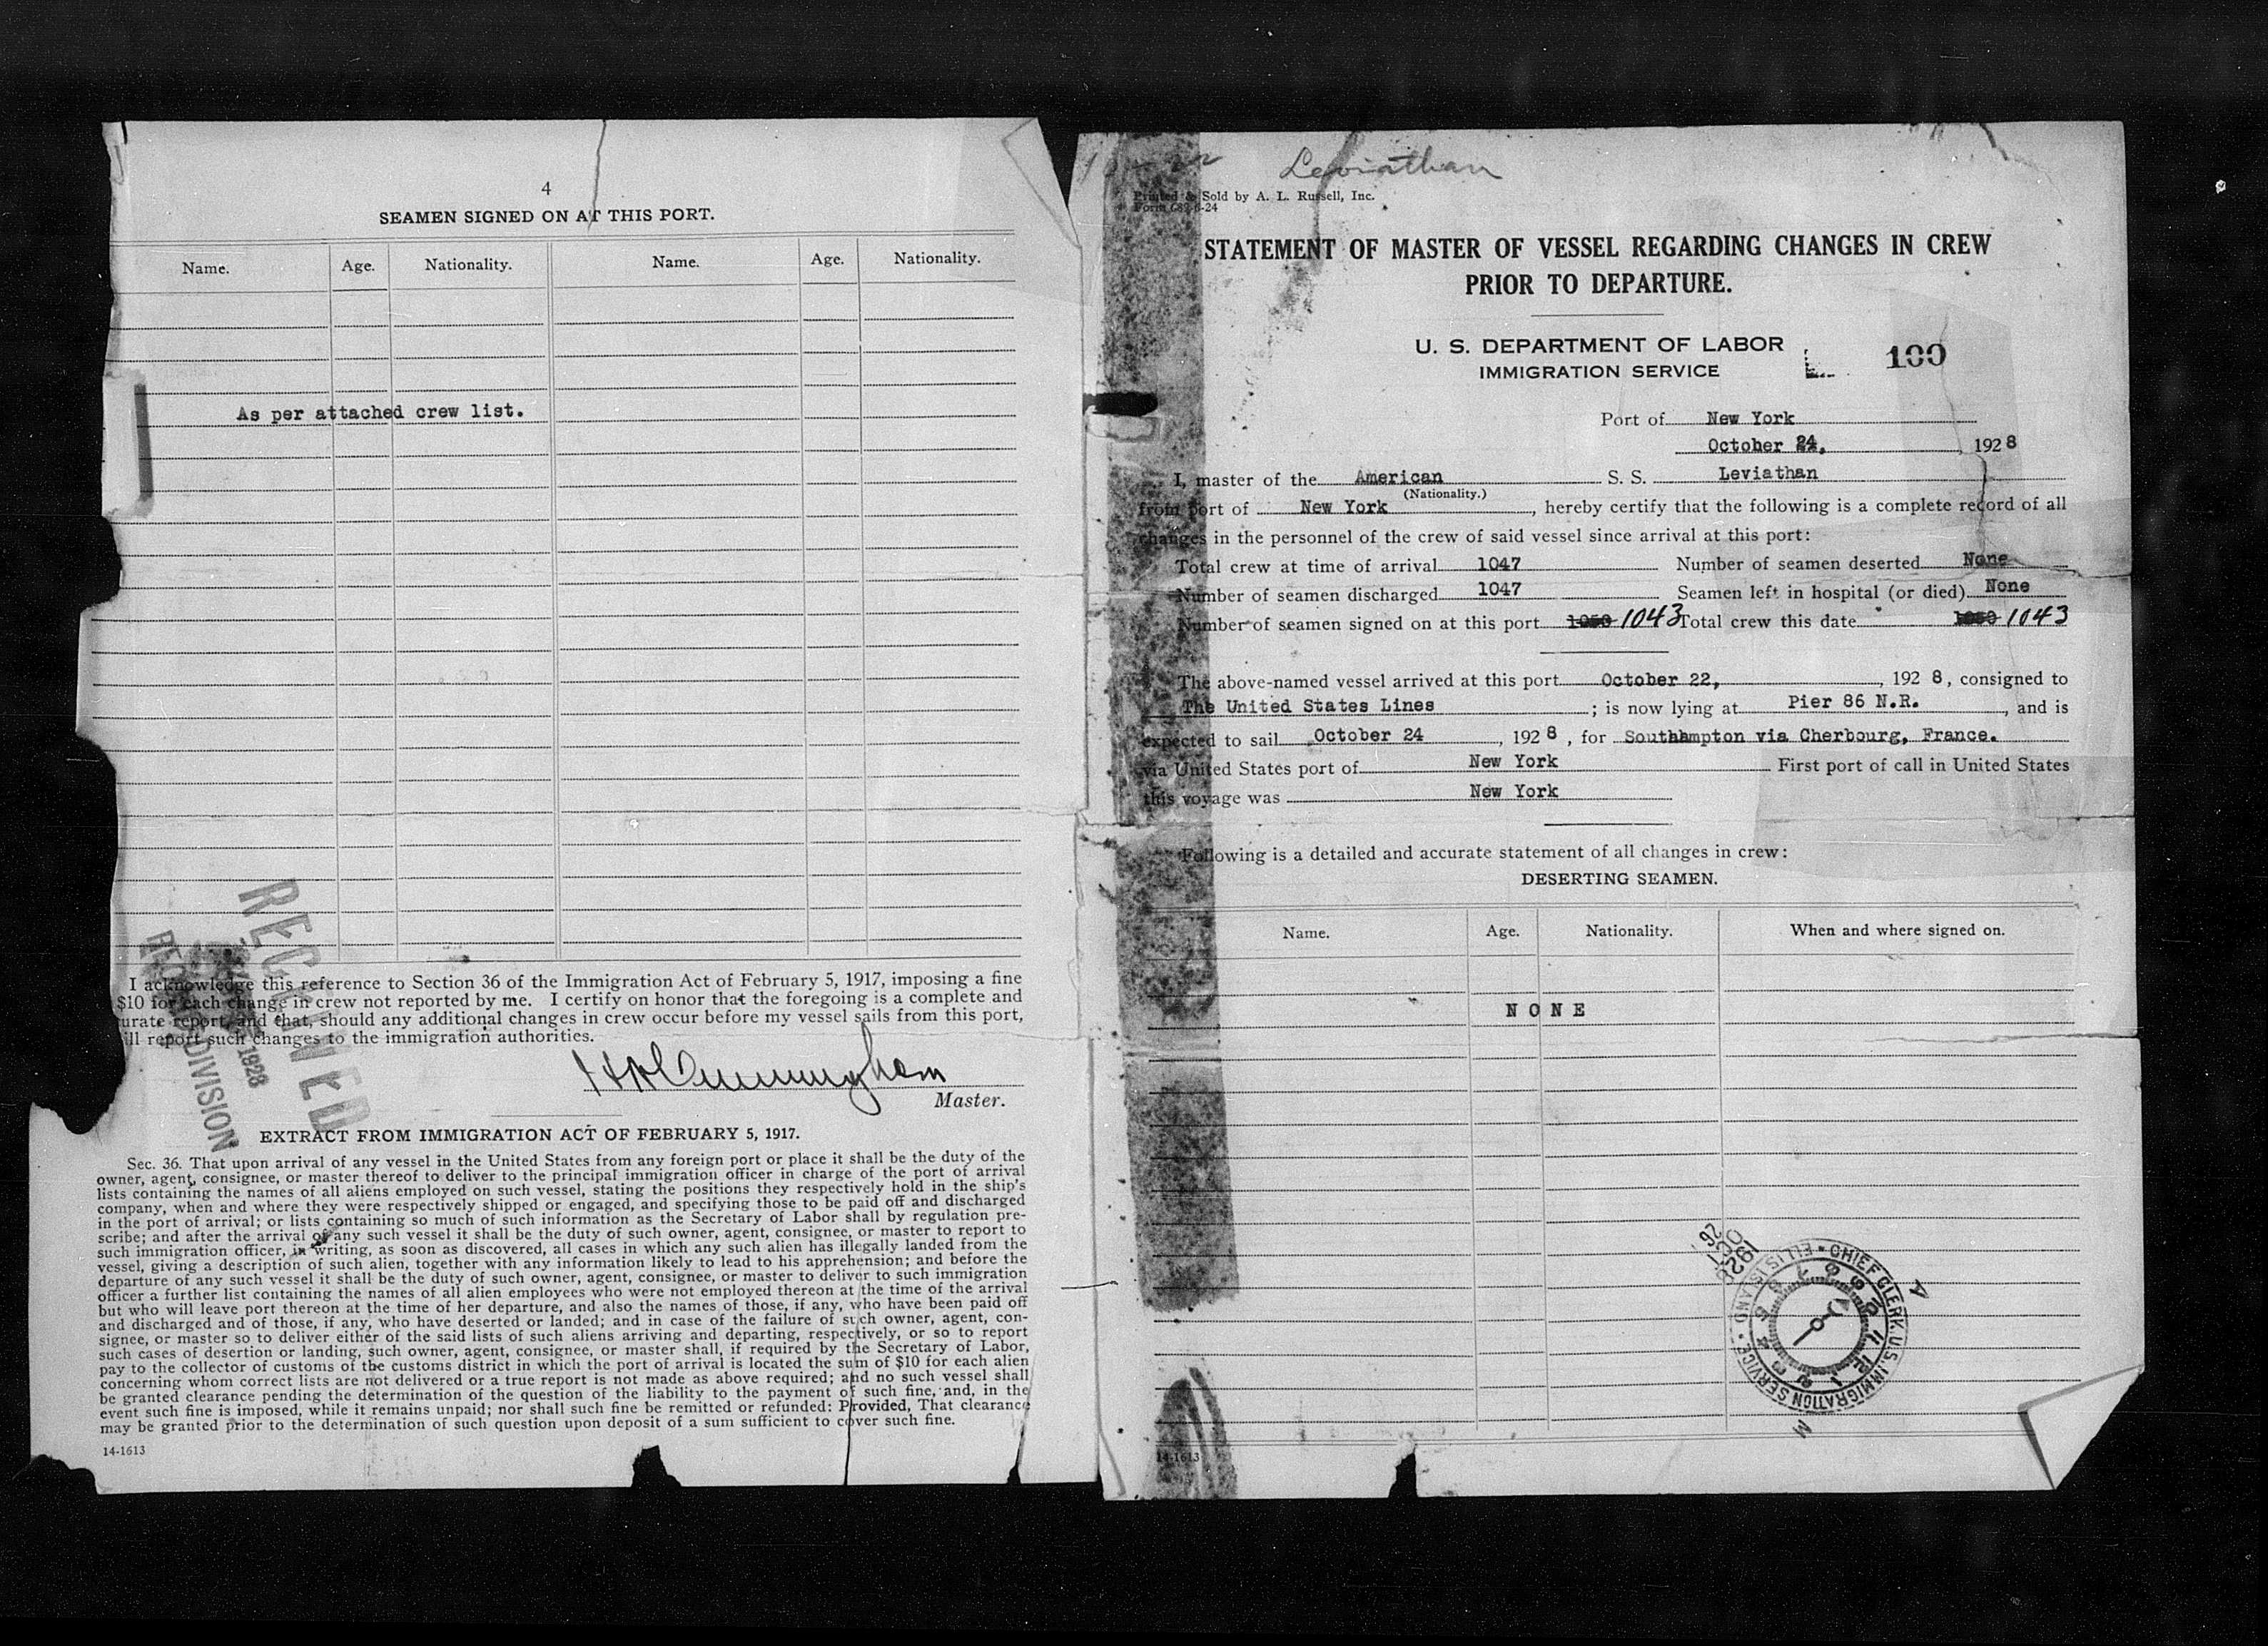 4
SEAMEN SIGNED ON AT THIS PORT.
Name. Age. Nationality. Name. Age. Nationality.
As per attached crew list.
I acknowledge this reference to Section 36 of the Immigration Act of February 5, 1917, imposing a fine
$10 for each change in crew not reported by me. I certify on honor that the foregoing is a complete and
urate report, and that, should any additional changes in crew occur before my vessel sails from this port,
ill report such changes to the immigration authorities.
RECEIVED
1928
DIVISION
Cunningham
Master.
EXTRACT FROM IMMIGRATION ACT OF FEBRUARY 5, 1917.
Sec. 36. That upon arrival of any vessel in the United States from any foreign port or place it shall be the duty of the
owner, agent, consignee, or master thereof to deliver to the principal immigration officer in charge of the port of arrival
lists containing the names of all aliens employed on such vessel, stating the positions they respectively hold in the ship's
company, when and where they were respectively shipped or engaged, and specifying those to be paid off and discharged
in the port of arrival; or lists containing so much of such information as the Secretary of Labor shall by regulation pre-
scribe; and after the arrival of any such vessel it shall be the duty of such owner, agent, consignee, or master to report to
such immigration officer, in writing, as soon as discovered, all cases in which any such alien has illegally landed from the
vessel, giving a description of such alien, together with any information likely to lead to his apprehension; and before the
departure of any such vessel it shall be the duty of such owner, agent, consignee, or master to deliver to such immigration
officer a further list containing the names of all alien employees who were not employed thereon at the time of the arrival
but who will leave port thereon at the time of her departure, and also the names of those, if any, who have been paid off
and discharged and of those, if any, who have deserted or landed; and in case of the failure of such owner, agent, con-
signee, or master so to deliver either of the said lists of such aliens arriving and departing, respectively, or so to report
such cases of desertion or landing, such owner, agent, consignee, or master shall, if required by the Secretary of Labor,
pay to the collector of customs of the customs district in which the port of arrival is located the sum of $10 for each alien
concerning whom correct lists are not delivered or a true report is not made as above required; and no such vessel shall
be granted clearance pending the determination of the question of the liability to the payment of such fine, and, in the
event such fine is imposed, while it remains unpaid; nor shall such fine be remitted or refunded: Provided, That clearance
may be granted prior to the determination of such question upon deposit of a sum sufficient to cover such fine.
14-1613
Leviathan
Printed & Sold by A. L. Russell, Inc.
Form 689-6-24
STATEMENT OF MASTER OF VESSEL REGARDING CHANGES IN CREW
PRIOR TO DEPARTURE.
U. S. DEPARTMENT OF LABOR
IMMIGRATION SERVICE
100
Port of New York
October 24, 1928
I, master of the American S. S. Leviathan
(Nationality.)
from port of New York, hereby certify that the following is a complete record of all
changes in the personnel of the crew of said vessel since arrival at this port:
Total crew at time of arrival 1047 Number of seamen deserted None
Number of seamen discharged 1047 Seamen left in hospital (or died) None
Number of seamen signed on at this port 1050 1043 Total crew this date 1050 1043
The above-named vessel arrived at this port October 22, 1928, consigned to
The United States Lines; is now lying at Pier 86 N.R., and is
expected to sail October 24, 1928, for Southampton via Cherbourg, France.
via United States port of New York First port of call in United States
this voyage was New York
Following is a detailed and accurate statement of all changes in crew:
DESERTING SEAMEN.
Name. Age. Nationality. When and where signed on.
NONE
1928
OCT
26
CHIEF CLERK, U.S. IMMIGRATION SERVICE • ELLIS ISLAND •
A
M
14-1613